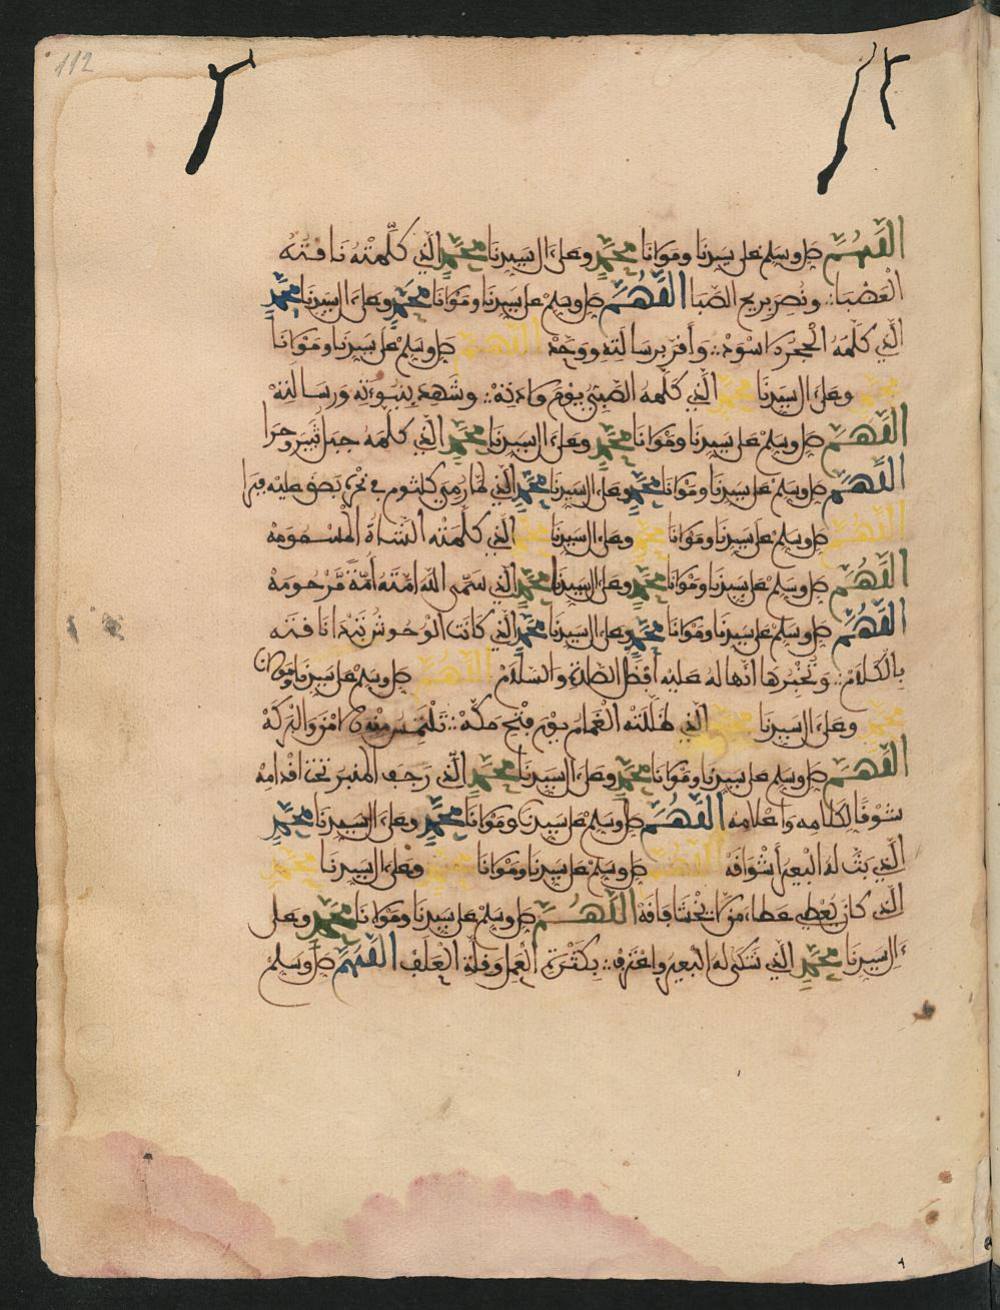 112
اللهم صل وسلم على سيدنا ومولانا محمد وعلى ءال سيدنا محمد الذي كلمته نافته
العضبا ∴ ونصر بريح الصبا اللهم صل وسلم على سيدنا ومولانا محمد وعلى ءال سيدنا محمد
الذي كلمه الحجر الاسود ∴ وأقر برسالته ووحد اللهم صل وسلم على سيدنا ومولانا
محمد وعلى ءال سيدنا محمد الذي كلمه الصبي يوم ولادته ∴ وشهد بنبوءته ورسالته
اللهم صل وسلم على سيدنا ومولانا محمد وعلى ءال سيدنا محمد الذي كلمه جبل ثبير وحرا
اللهم صل وسلم على سيدنا ومولانا محمد وعلى ءال سيدنا محمد الذي لما رمي كلثوم في نحره بصق عليه فبرا
اللهم صل وسلم على سيدنا ومولانا محمد وعلى ءال سيدنا محمد الذي كلمته الشاة المسمومه
اللهم صل وسلم على سيدنا ومولانا محمد وعلى ءال سيدنا محمد الذي سمى الله امته أمة مرحومه
اللهم صل وسلم على سيدنا ومولانا محمد وعلى ءال سيدنا محمد الذي كانت الوحوش تبدا نافته
بالكلام ∴ وتخبرها أنها له عليه أفضل الصلاة والسلام اللهم صل وسلم على سيدنا ومولانا
محمد وعلى ءال سيدنا محمد الذي ظللته الغمام يوم فتح مكة ∴ تلتمس منه الامن والبركه
اللهم صل وسلم على سيدنا ومولانا محمد وعلى ءال سيدنا محمد الذي رجف المنبر تحت اقدامه
شوقا لكلامه واعلامه اللهم صل وسلم على سيدنا ومولانا محمد وعلى ءال سيدنا محمد
الذي بث له البعير أشواقه اللهم صل وسلم على سيدنا ومولانا محمد وعلى ءال سيدنا محمد
الذي كان يعطي عطاء من لا يخشا فاقه اللهم صل وسلم على سيدنا ومولانا محمد وعلى
ءال سيدنا محمد الذي شكى له البعير واعترف ∴ بكثرة العمل وقلة العلف اللهم صل وسلم